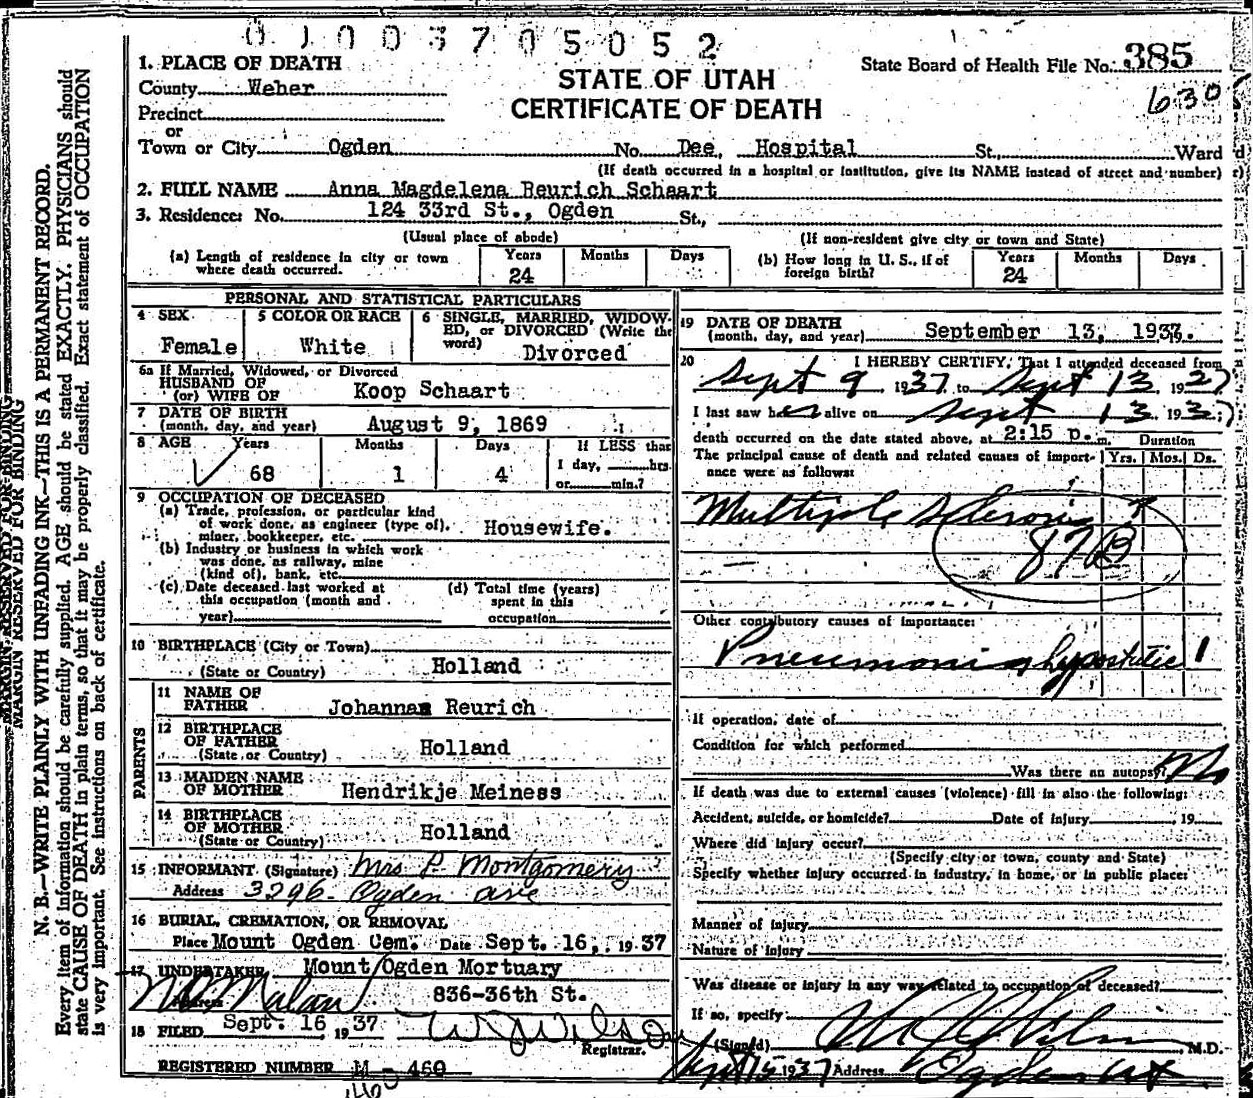 0100370 5052
1. PLACE OF DEATH
County Weber
Precinct
or
Town or City Ogden No. Dee, Hospital St., Ward
STATE OF UTAH
CERTIFICATE OF DEATH
State Board of Health File No. 385
630
(If death occurred in a hospital or institution, give its NAME instead of street and number)
2. FULL NAME Anna Magdelena Reurich Schaart
3. Residence: No. 124 33rd St., Ogden St.,
(Usual place of abode) (If non-resident give city or town and State)
(a) Length of residence in city or town where death occurred. Years 24 Months Days
(b) How long in U. S., if of foreign birth? Years 24 Months Days
PERSONAL AND STATISTICAL PARTICULARS
4 SEX Female
5 COLOR OR RACE White
6 SINGLE, MARRIED, WIDOWED, or DIVORCED (Write the word) Divorced
6a If Married, Widowed, or Divorced
HUSBAND OF
(or) WIFE OF Koop Schaart
7 DATE OF BIRTH
(month, day, and year) August 9, 1869
8 AGE Years 68 Months 1 Days 4 If LESS than
1 day, hrs.
or min.?
9 OCCUPATION OF DECEASED
(a) Trade, profession, or particular kind
of work done, as engineer (type of),
miner, bookkeeper, etc. Housewife.
(b) Industry or business in which work
was done, as railway, mine
(kind of), bank, etc.
(c) Date deceased last worked at
this occupation (month and
year)
(d) Total time (years)
spent in this
occupation
10 BIRTHPLACE (City or Town)
(State or Country) Holland
PARENTS
11 NAME OF
FATHER Johannas Reurich
12 BIRTHPLACE
OF FATHER
(State or Country) Holland
13 MAIDEN NAME
OF MOTHER Hendrikje Meiness
14 BIRTHPLACE
OF MOTHER
(State or Country) Holland
15 INFORMANT (Signature) Mrs P. Montgomery
Address 3296 Ogden ave
16 BURIAL, CREMATION, OR REMOVAL
Place Mount Ogden Cem. Date Sept. 16, 1937
17 UNDERTAKER Mount Ogden Mortuary
Address 836-36th St.
18 FILED Sept. 16 1937
Registrar.
REGISTERED NUMBER M - 460
460
19 DATE OF DEATH
(month, day, and year) September 13, 1937.
20 I HEREBY CERTIFY, That I attended deceased from
Sept 9 1937 to Sept 13 1937
I last saw her alive on Sept 13 1937
death occurred on the date stated above, at 2:15 p. m. Duration
The principal cause of death and related causes of importance were as follows: Yrs. Mos. Ds.
Multiple Sclerosis ?
87B
Other contributory causes of importance:
Pneumonia hypostatic 1
If operation, date of
Condition for which performed
Was there an autopsy? No
If death was due to external causes (violence) fill in also the following:
Accident, suicide, or homicide? Date of injury , 19
Where did injury occur?
(Specify city or town, county and State)
Specify whether injury occurred in industry, in home, or in public place:
Manner of injury
Nature of injury
Was disease or injury in any way related to occupation of deceased?
If so, specify
(Signed) , M.D.
Sept 15 1937 Address Ogden Ut
MARGIN RESERVED FOR BINDING
MARGIN RESERVED FOR BINDING
N. B.—WRITE PLAINLY WITH UNFADING INK—THIS IS A PERMANENT RECORD.
Every item of information should be carefully supplied. AGE should be stated EXACTLY. PHYSICIANS should
state CAUSE OF DEATH in plain terms, so that it may be properly classified. Exact statement of OCCUPATION
is very important. See instructions on back of certificate.